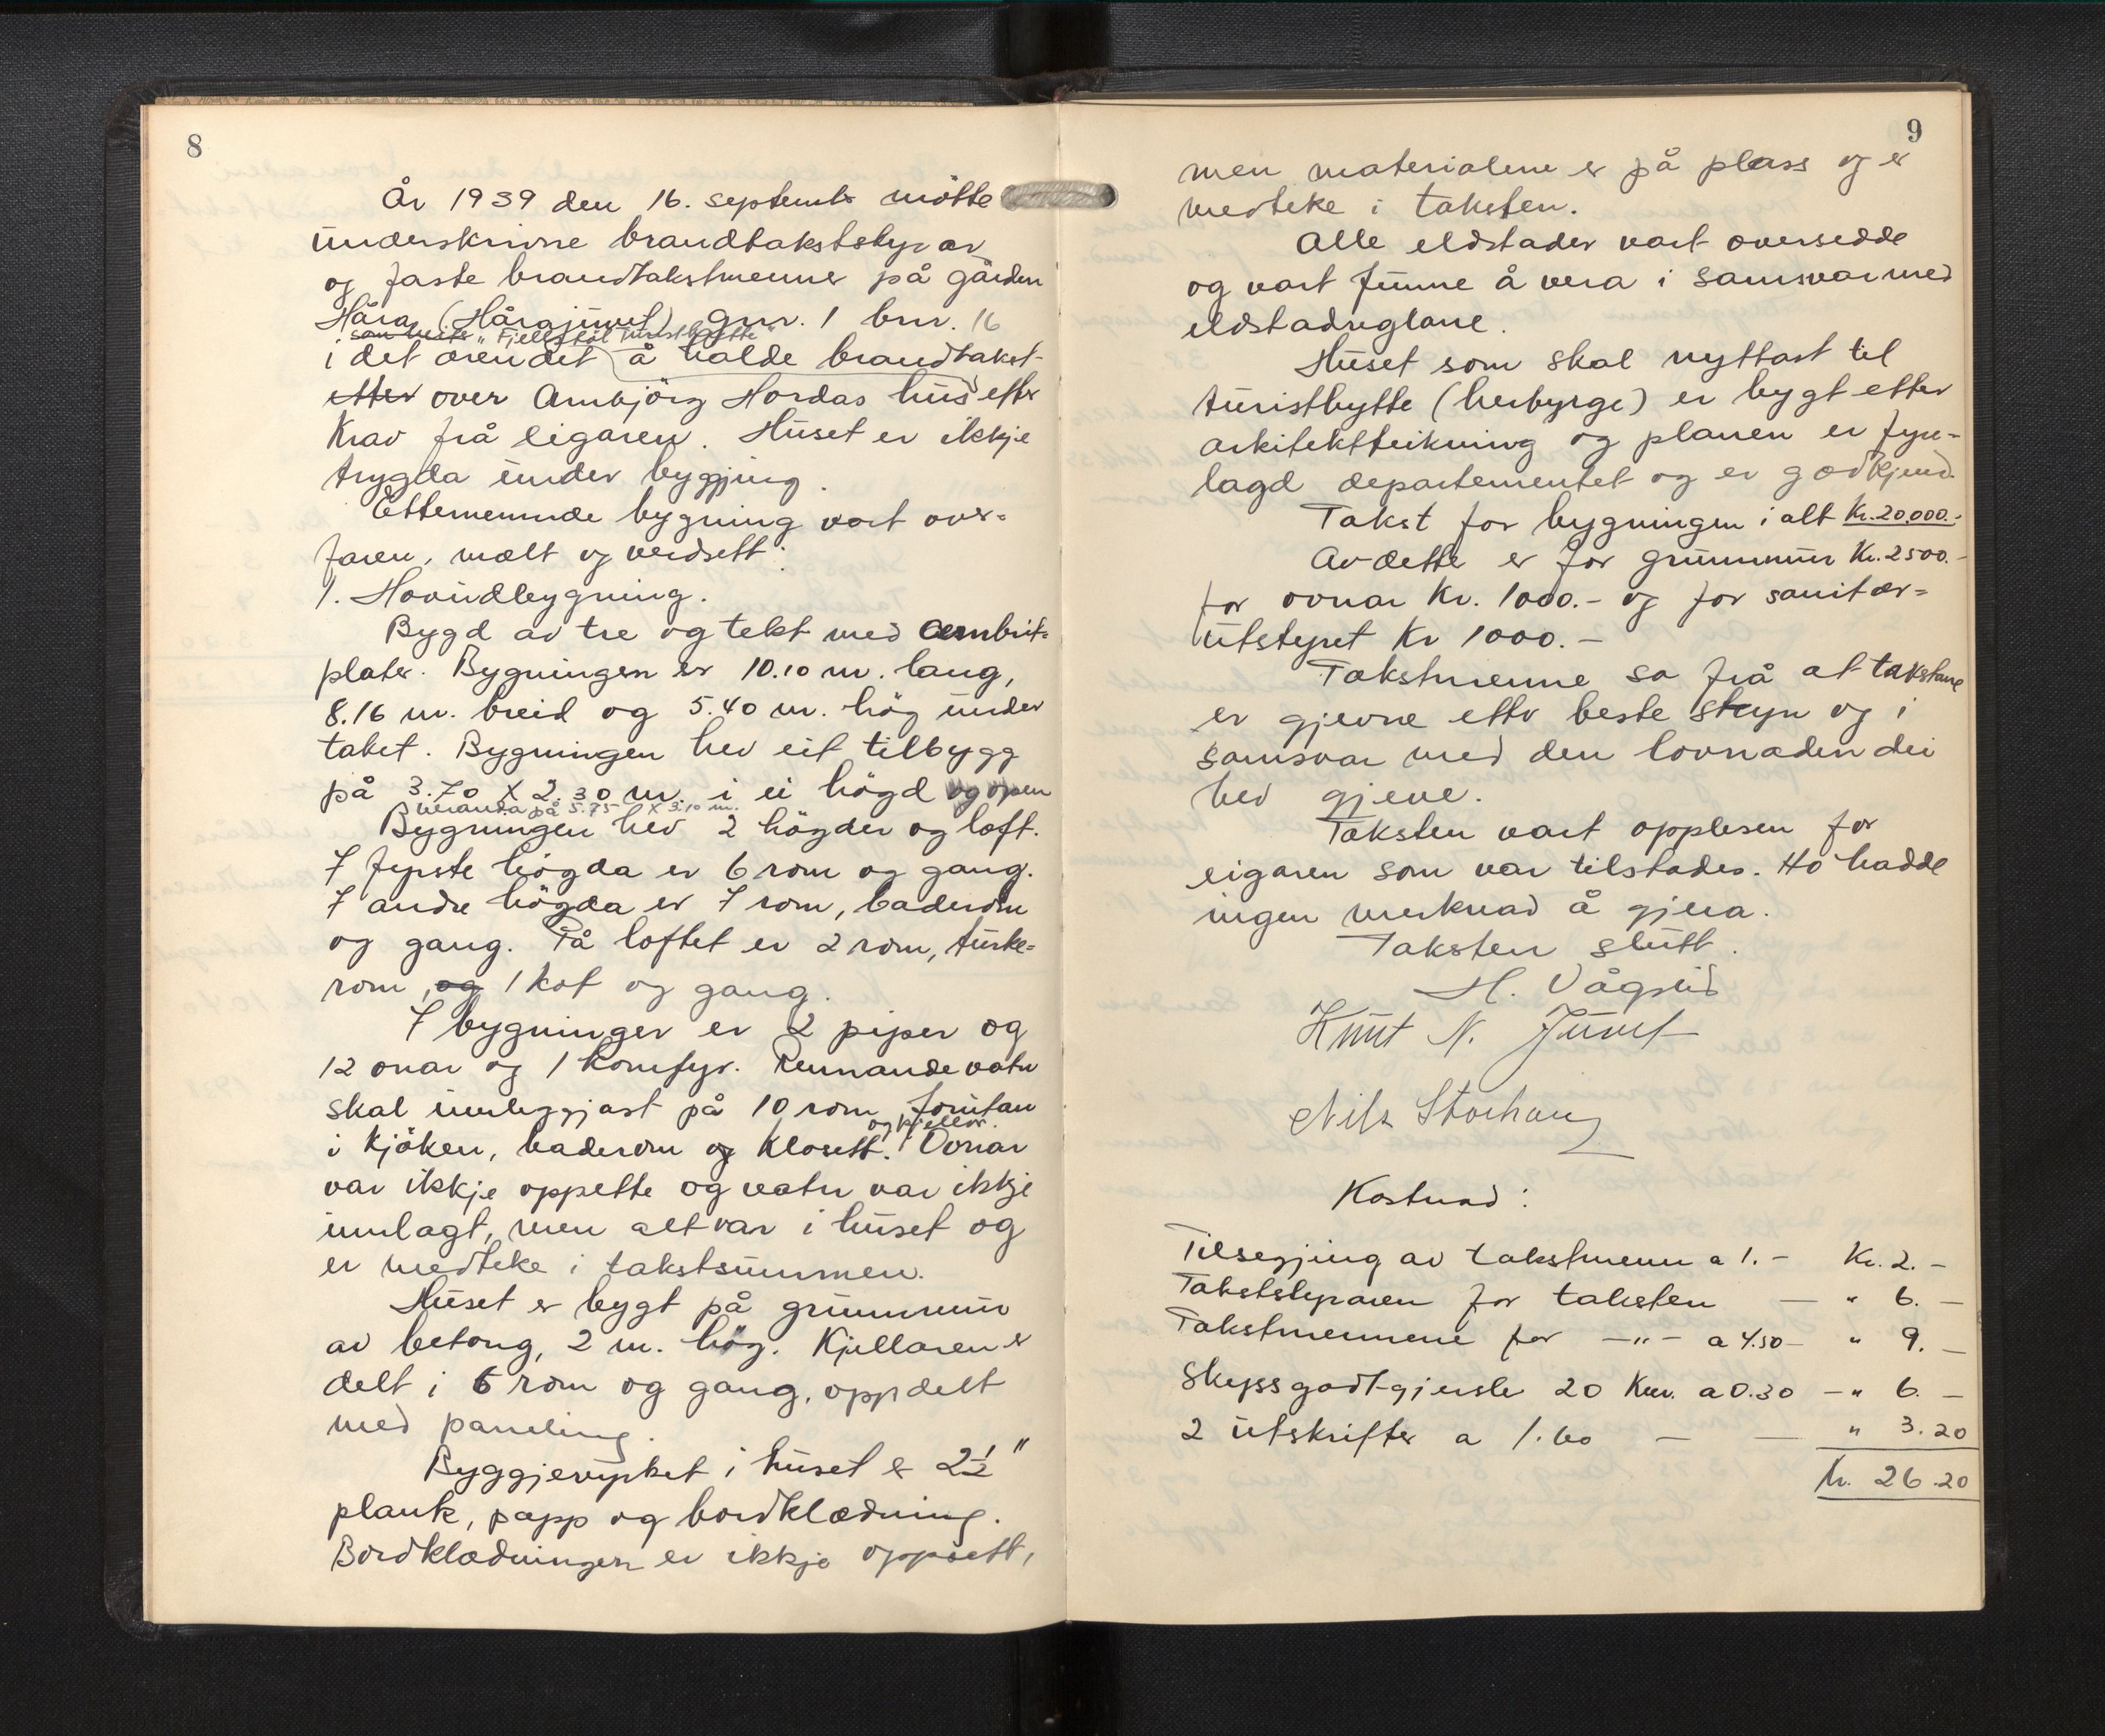 8
År 1939 den 16. septembr mötte
underskrivne brandtakststyrar
og faste brandtakstmenner på gården
Håra (Hårajuvet) gnr. 1 bnr. 16
som heite "Fjellstöl Turisthytte"
i det ørendet å halde brandtakst
etter over Ambjörg Hordas hus efter
Krav frå eigaren. Huset er ikkje
trygda under byggjing.
Etternemnde bygning vart over=
faren, mælt og verdsett:
1. Hovudbygning.
Bygd av tre og tekt med Cembrit=
plater. Bygningen er 10.10 m. lang,
8.16 m. breid og 5.40 m. hög under
taket. Bygningen hev eit tilbygg
på 3.70 X 2.30 m. i ei högd og open
veranda på 5.75 X 3.10 m.
Bygningen hev 2 högder og loft.
I fyrste högda er 6 rom og gang.
I andre högda er 7 rom, baderom
og gang. På loftet er 2 rom, turke=
rom, og 1 kot og gang.
I bygninger er 2 piper og
12 onar og 1 Komfyr. Rennande vatn
skal innleggjast på 10 rom forutan
og kjellar.
i kjöken, baderom og Klosett. Ovnar
var ikkje oppsette og vatn var ikkje
innlagt, men alt var i huset og
er medteke i takstsummen.
Huset er bygt på grunnmur
av betong, 2 m. hög. Kjellaren er
delt i 6 rom og gang, oppdelt
med paneling.
Byggjevyrket i huset er 2½"
plank, papp og bordklædning.
Bordklædningen er ikkje oppsett,
9
men materialene er på plass og er
medteke i taksten.
Alle eldstader vart oversedde
og vart funne å vera i samsvar med
eldstadreglane.
Huset som skal nyttast til
turisthytte (herbyrge) er bygt etter
arkitektteikning og planen er fyre=
lagd departementet og er godkjend.
Takst for bygningen i alt Kr. 20.000.-
Av dette er for grunnmur Kr. 2500.-
for ovnar Kr. 1000.- og for sanitær=
utstyret Kr 1000.-
Takstmenne sa frå at takstane
er gjevne etter beste skyn og i
samsvar med den lovnaden dei
hev gjeve.
Taksten vart opplesen for
eigaren som var tilstades. Ho hadde
ingen merknad å gjera.
Taksten slutt.
H. Vågslid
Knut N. Juvet
Nils Storhaug
Kostnad:
Tilsegjing av takstmenn a 1.- Kr. 2.-
Takststyraren for taksten — " 6.—
Takstmennene for —"— a 4.50 — " 9.—
Skyssgodtgjersle 20 Km. a 0.30 — " 6.—
2 utskrifter a 1.60 — — " 3.20
Kr. 26.20